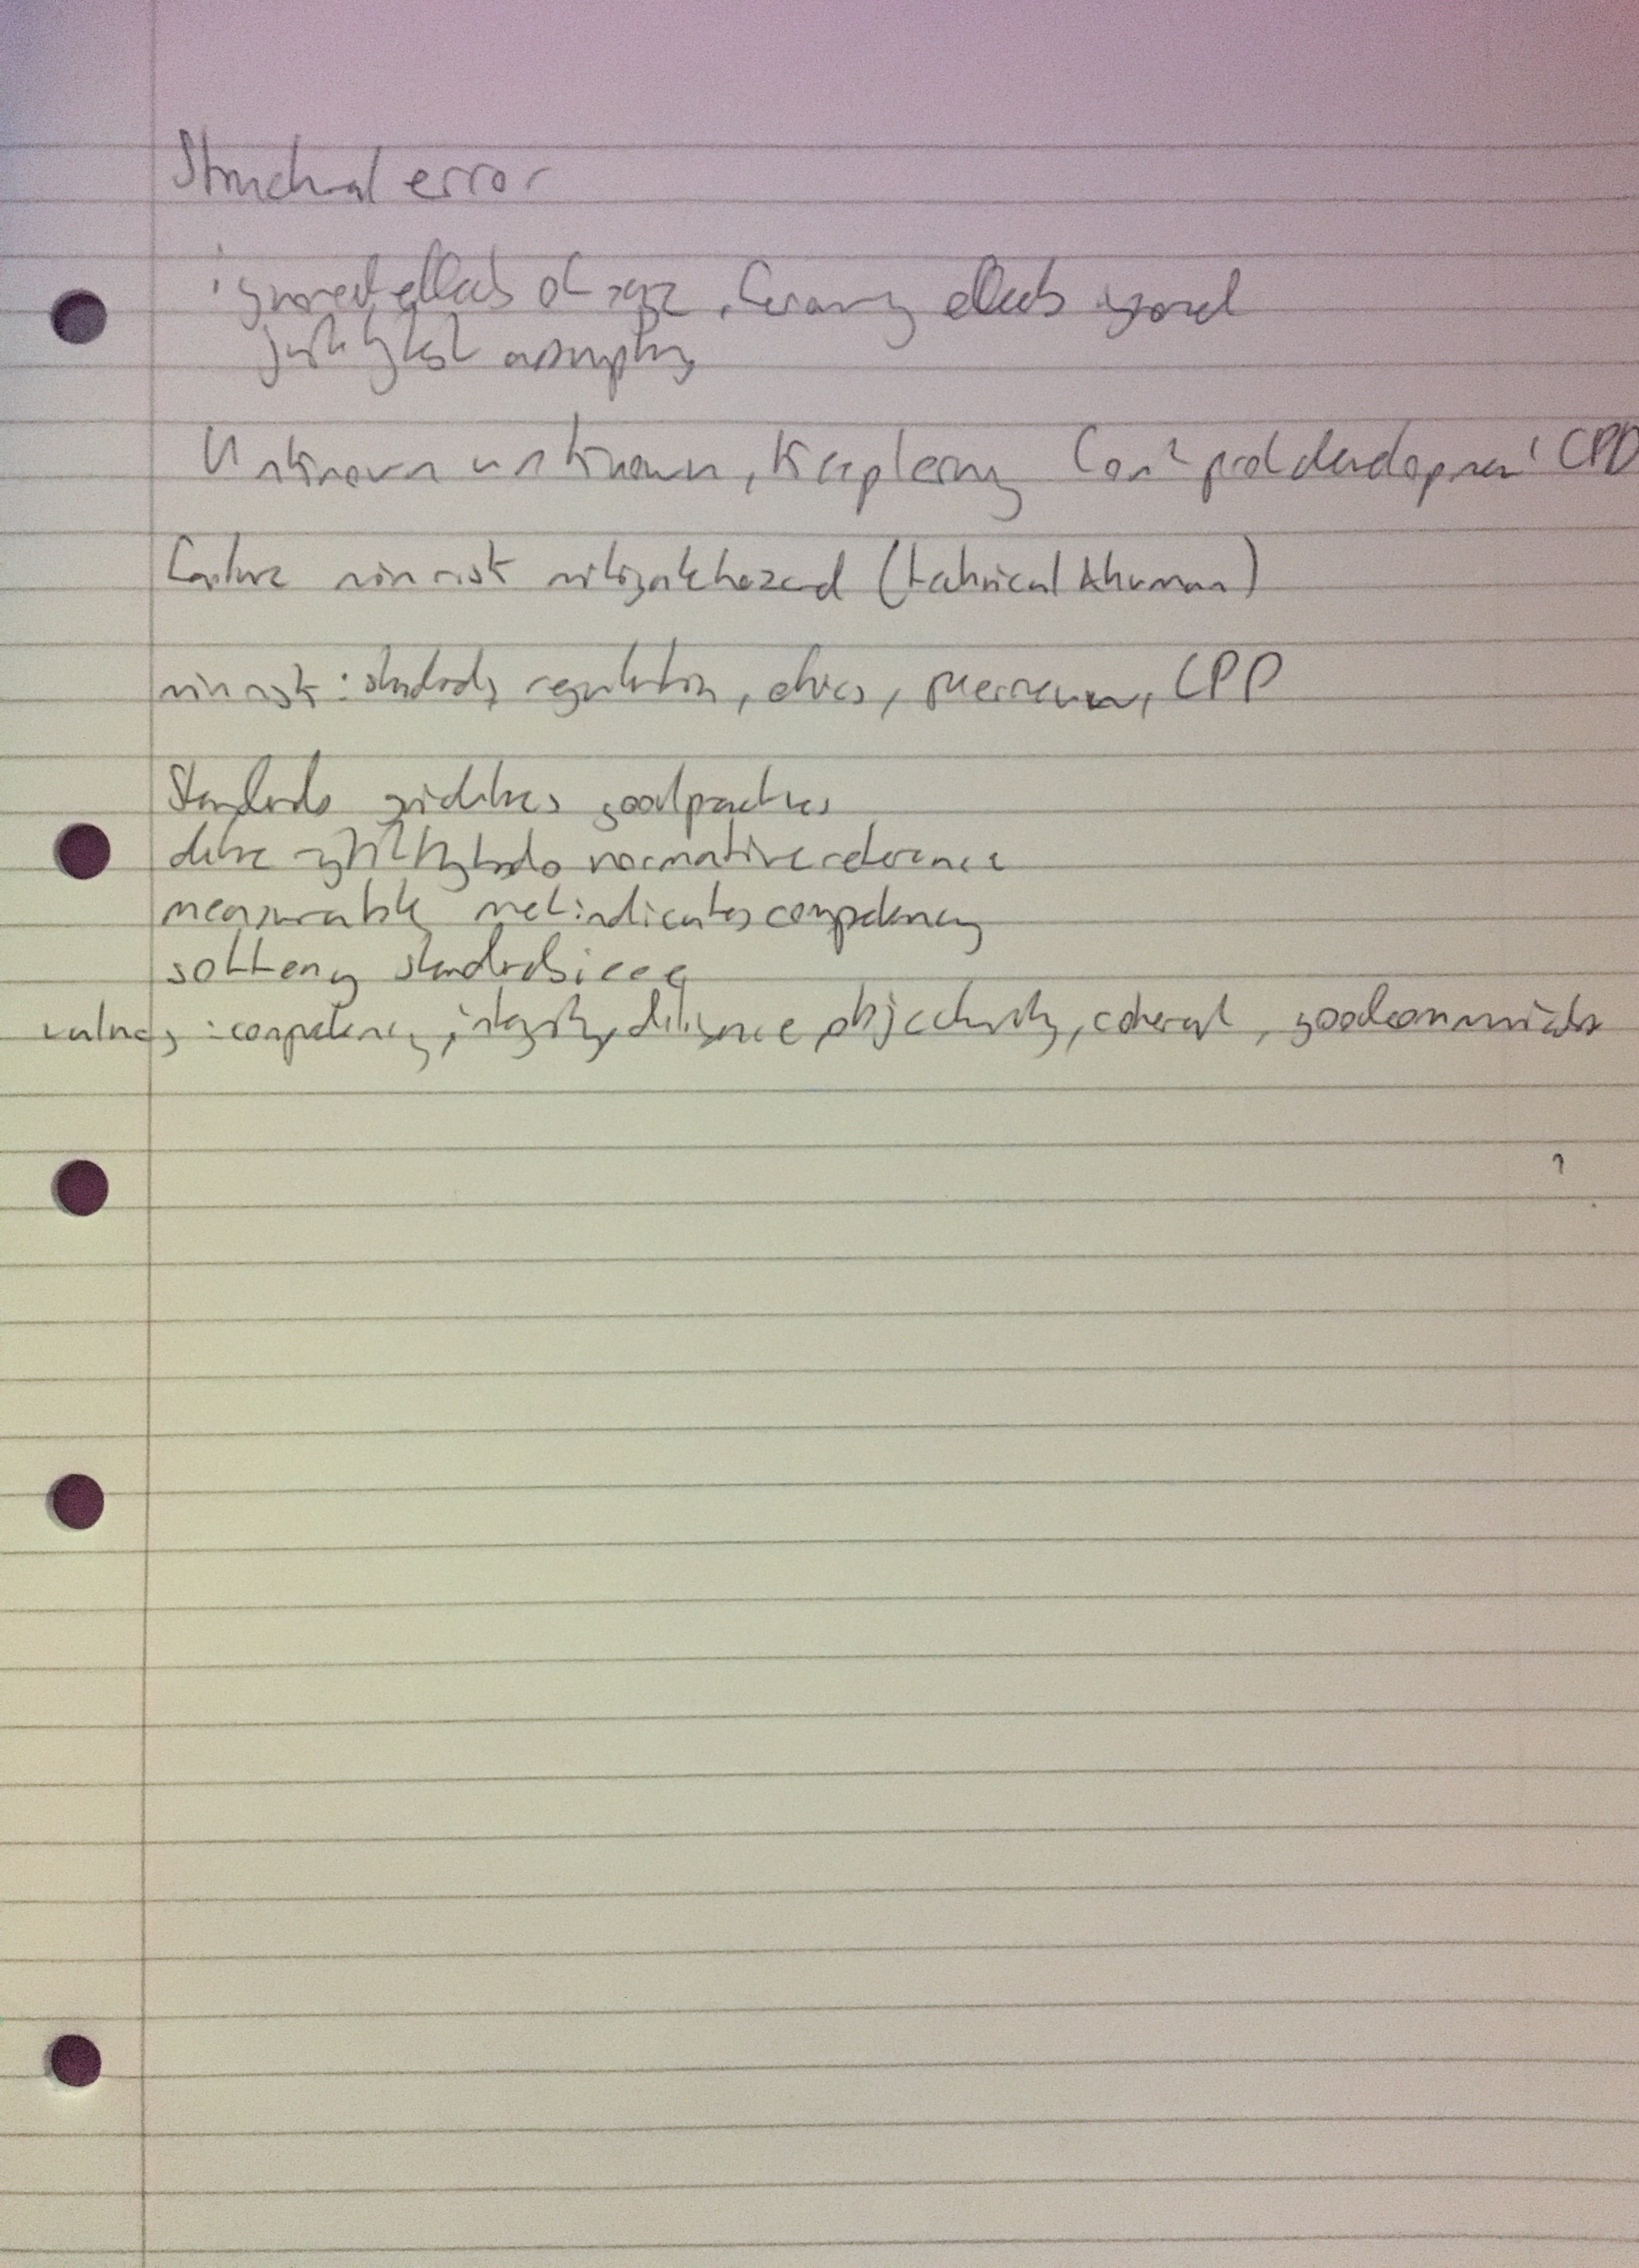 Structural error
ignored effects of size, ignored
justify test assumptions
Unknown unknown, keep learning Cont prof development CPD
failure min risk mitigate hazard (technical & human)
min risk: standards, regulation, ethics, peer review, CPD
Standards guidelines good practices
define normative reference
measurable, met indicates competency
software eng standards ieee
values: competency, integrity, diligence, objectivity, coherent, good communication